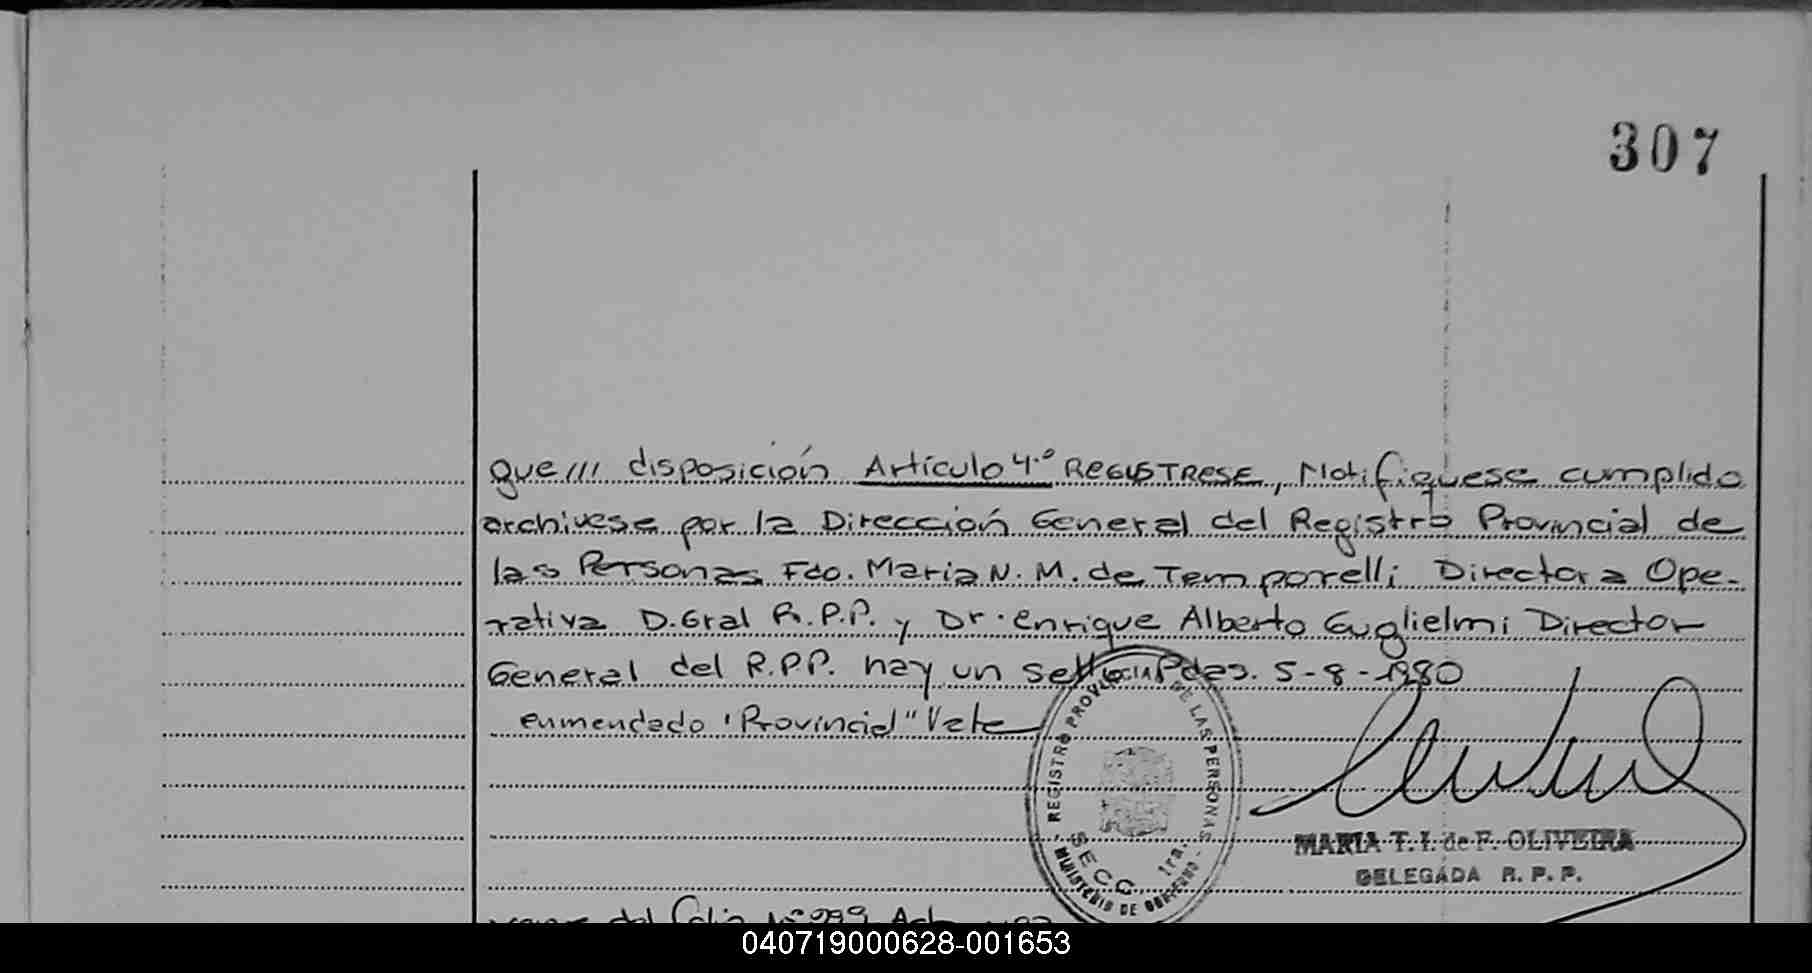 307
que /// disposición Artículo 4.º REGISTRESE, Notifiquese cumplido
archivese por la Dirección General del Registro Provincial de
las Personas Fdo. Maria N. M. de Temporelli Directora Ope-
rativa D. Gral R.P.P. y Dr. Enrique Alberto Guglielmi Director
General del R.P.P. hay un sello Pdas. 5-8-1980
enmendado "Provincial" Vale
REGISTRO PROVINCIAL DE LAS PERSONAS
SECC. 1ra.
MINISTERIO DE GOBIERNO
MARIA T. I. de F. OLIVEIRA
DELEGADA R. P. P.
del Folio Nº 299 Acta
040719000628-001653